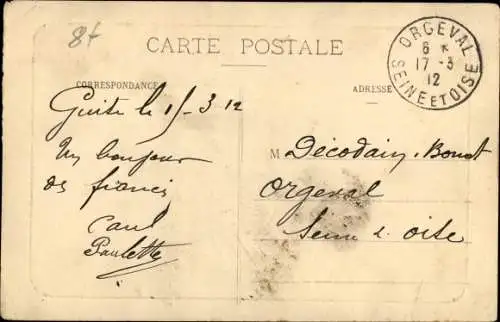 8f
CARTE POSTALE
ORGEVAL
6 *
17 - 3
12
SEINE ET OISE
CORRESPONDANCE
ADRESSE
Guite le 15-3.12
Un bonjour
des
Paul
Paulette
M Décodain. Bonot
Orgeval
Seine & oise